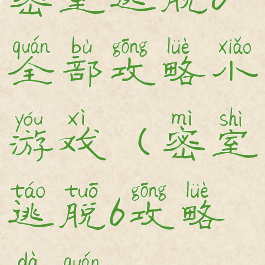 密室逃脱6
quán bù gōng lüè xiǎo
全部攻略小
yóu xì mì shì
游戏(密室
táo tuō gōng lüè
逃脱6攻略
dà quán